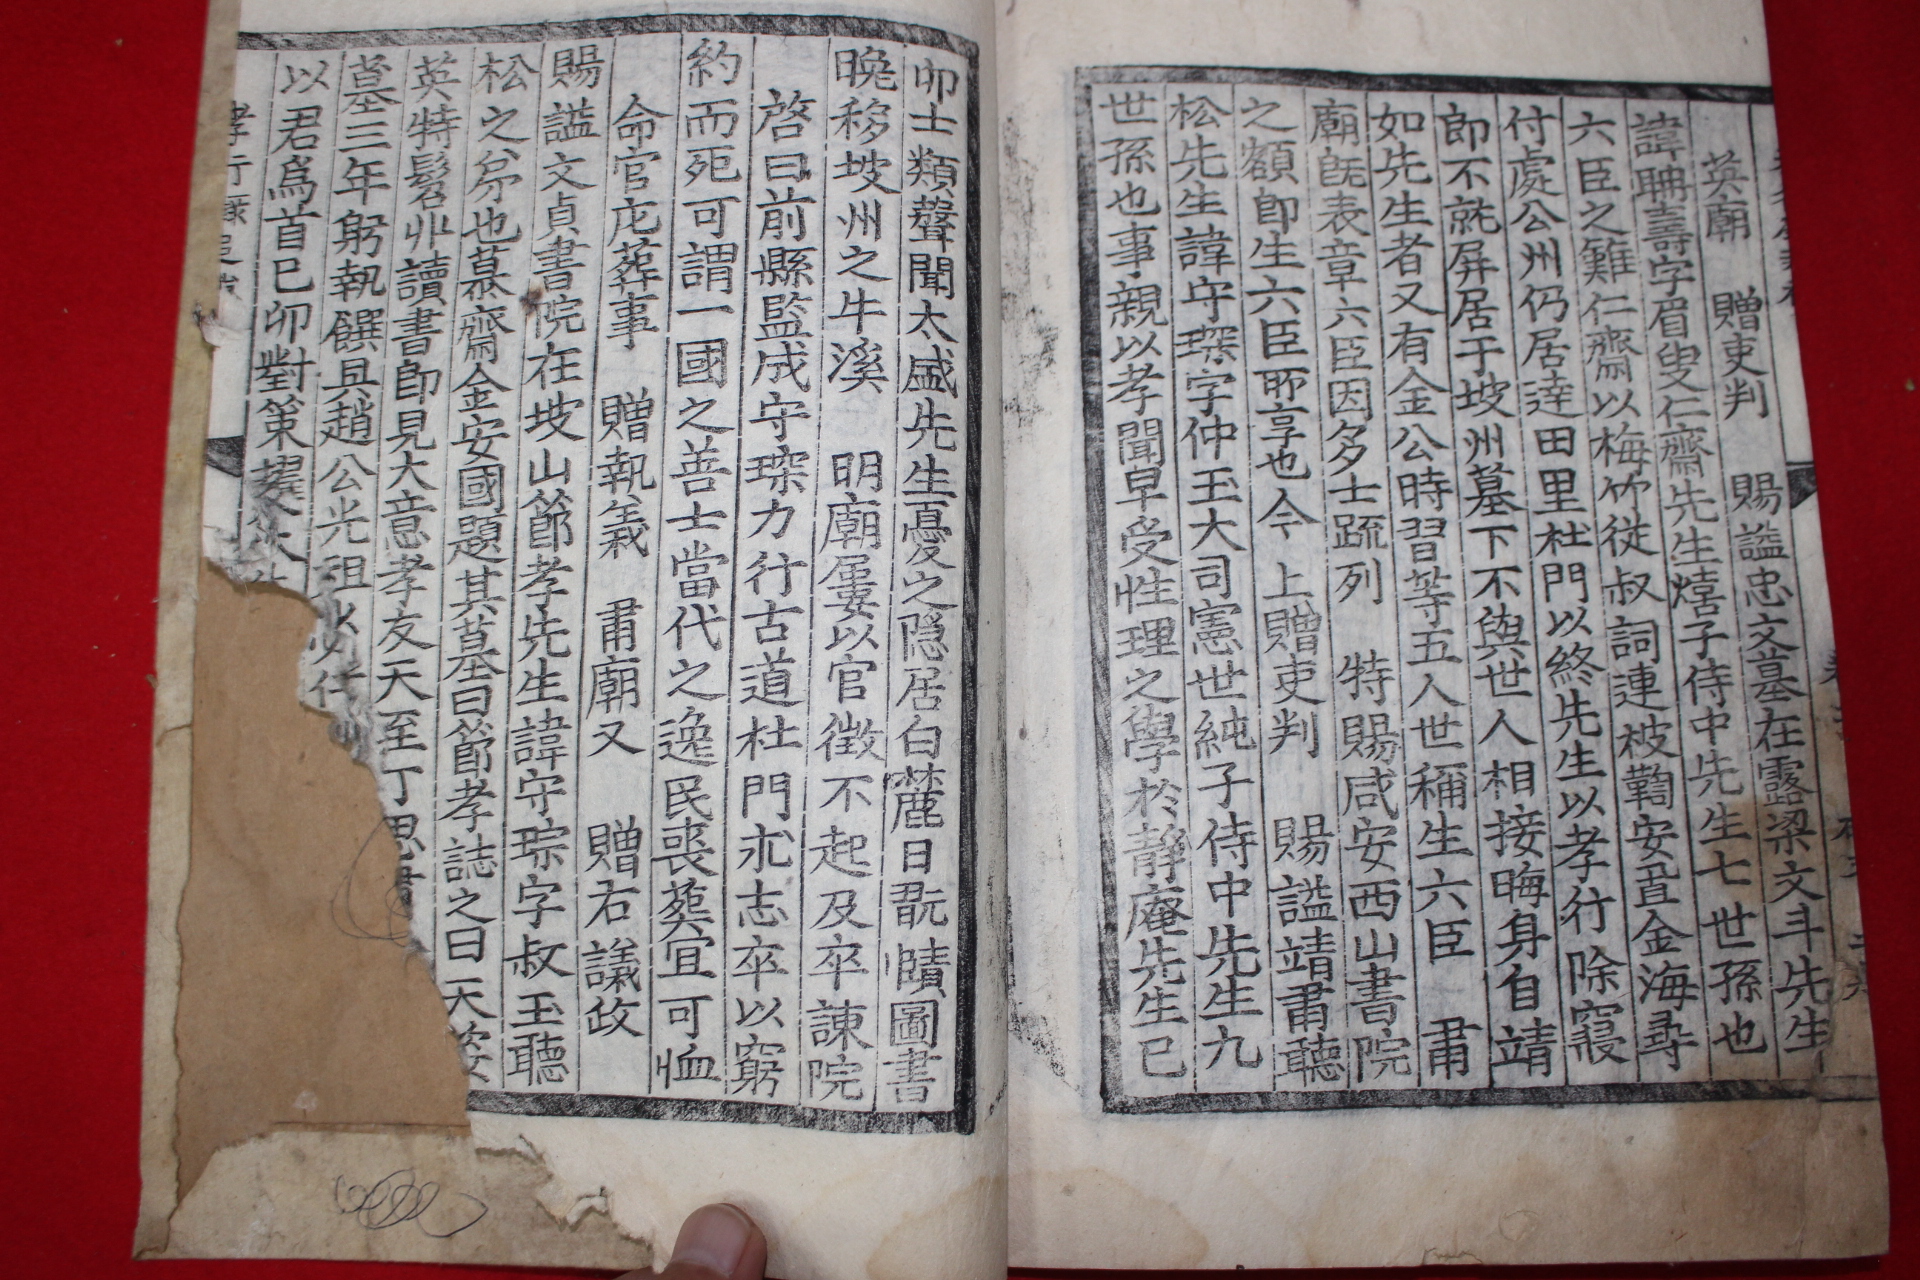 英廟 贈吏判 賜謚忠文墓在露梁文斗先生
諱聃壽字眉叟仁齋先生熺子侍中先生七世孫也
六臣之難仁齋以梅竹從叔詞連被鞫安置金海尋
付處公州仍居達田里杜門以終先生以孝行除寢
郎不就屏居于坡州墓下不與世人相接晦身自靖
如先生者又有金公時習等五人世稱生六臣 肅
廟旣表章六臣因多士疏列 特賜咸安西山書院
之額卽生六臣所享也今 上贈吏判 賜謚靖肅聽
松先生諱守琛字仲玉大司憲世純子侍中先生九
世孫也事親以孝聞早受性理之學於靜庵先生己
卯士類聲聞太盛先生憂之隱居白麓日翫賾圖書
晩移坡州之牛溪 明廟屢以官徵不起及卒諫院
啓曰前縣監成守琛力行古道杜門求志卒以窮
約而死可謂一國之善士當代之逸民喪葬宜可恤
命官庀葬事 贈執義 肅廟又 贈右議政
賜謚文貞書院在坡山節孝先生諱守琮字叔玉聽
松之弟也慕齋金安國題其墓曰節孝誌之曰天姿
英特髫丱讀書卽見大意孝友天至丁思肅
墓三年躬執饌具趙公光祖
以君爲首己卯對策擢
孝行錄